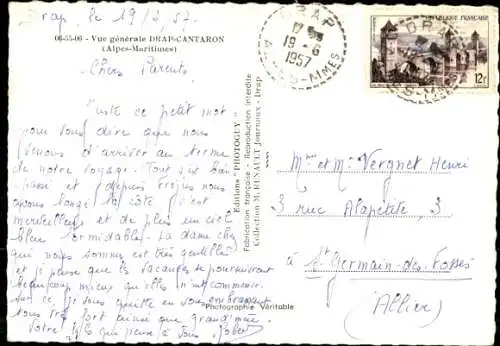 Drap, le 19/6/57.
06-55-06 - Vue générale DRAP-CANTARON
(Alpes-Maritimes)
Chers Parents
Juste ce petit mot
pour vous dire que nous
venons d'arriver au terme
de notre voyage. Tout s'est bien
passé et depuis
nous longé la côte c'est
merveilleux et de plus un ciel
bleu formidable. La dame chez
qui nous sommes est très gentille
et je pense que les vacances se poursuivront
beaucoup mieux qu'elles n'ont commencé.
Sur ce je vous quitte en vous embrassant
tous très fort ainsi que grand'mère.
Votre fils qui pense à vous. Robert
Photographie Véritable
Editions "PHOTOGUY"
Fabrication française - Reproduction interdite
Collection M. RENAULT Journaux - Drap
DRAP
19-6
1957
ALPES-MMES
DRAP
12F
Mme et Mr Vergnet Henri
3 rue Alapetite, 3
à St Germain-des-Fossés
(Allier)